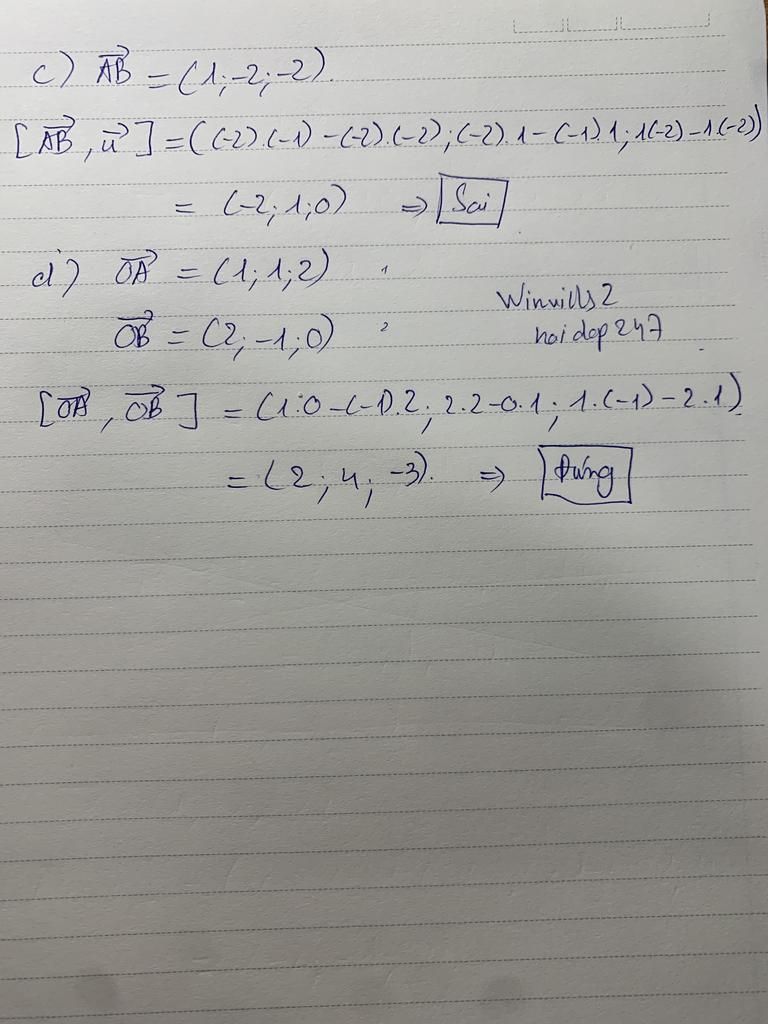 c) $\overrightarrow{AB}$ = (1; -2; -2).
[$\overrightarrow{AB}$, $\overrightarrow{u}$] = ((-2).(-1) - (-2).(-2); (-2).1 - (-1).1; 1(-2) - 1.(-2))
= (-2; 1; 0) ⇒ Sai
d) $\overrightarrow{OA}$ = (1; 1; 2)
$\overrightarrow{OB}$ = (2; -1; 0)
Winvills2
hoidap247
[$\overrightarrow{OA}$, $\overrightarrow{OB}$] = (1.0 - (-1).2; 2.2 - 0.1; 1.(-1) - 2.1)
= (2; 4; -3). ⇒ Đúng